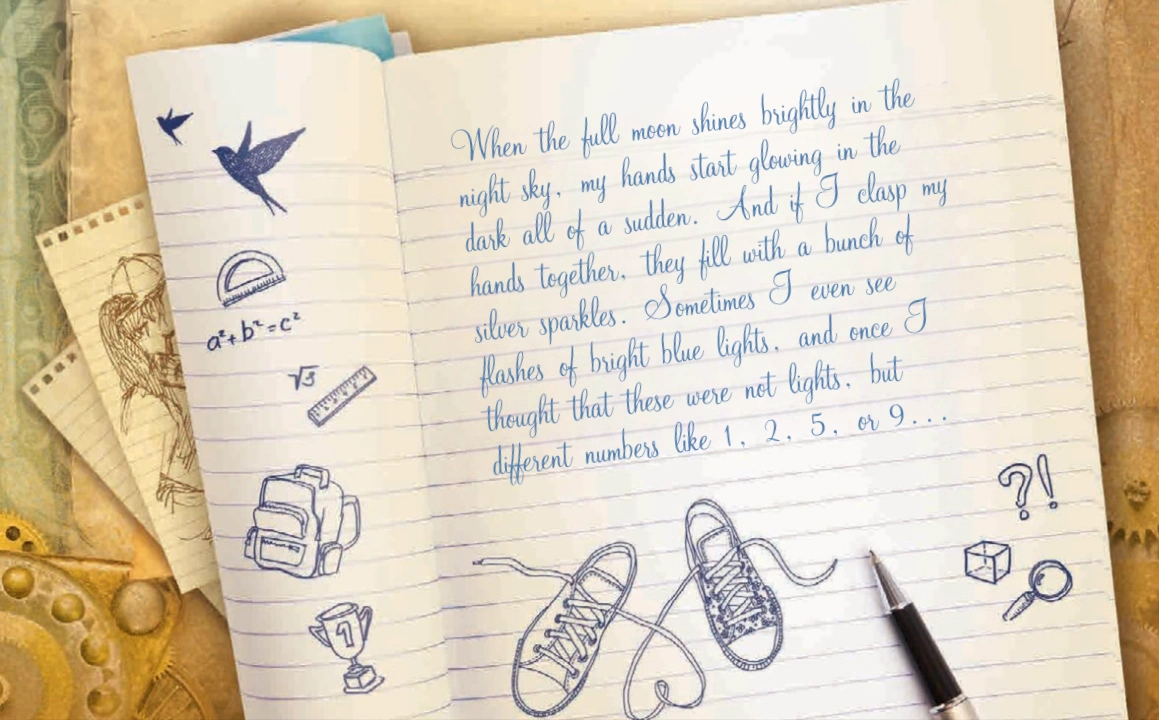 When the full moon shines brightly in the
night sky, my hands start glowing in the
dark all of a sudden. And if I clasp my
hands together, they fill with a bunch of
silver sparkles. Sometimes I even see
flashes of bright blue lights, and once I
thought that these were not lights, but
different numbers like 1, 2, 5, or 9...
a²+b²=c²
√3
1
?!